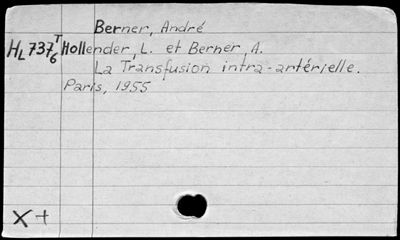 Berner, André
HL 737 T 6 Hollender, L. et Berner, A.
La Transfusion intra-artérielle.
Paris, 1955
X +